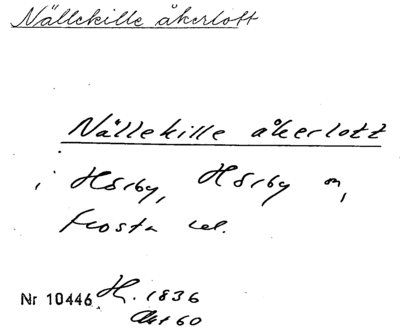 Nällekille åkerlott
Nällekille åkerlott
i Hörby, Hörby sn,
Frosta hd.
Nr 10446 H. 1836
Akt 60